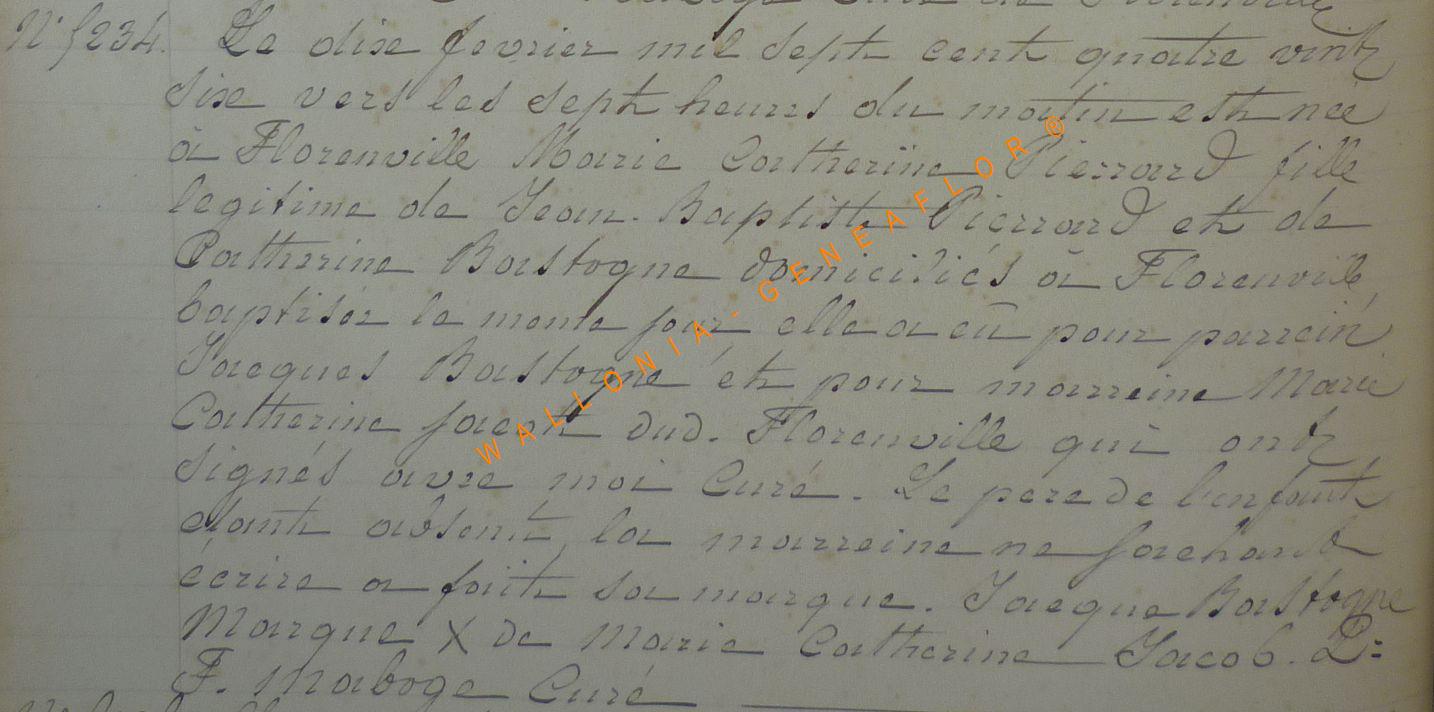 Curé de Florenville
N° 5234. Le dixe fevrier mil sept cent quatre vint
sixe vers les sept heures du matin est née
à Florenville Marie Catherine Pierrard fille
legitime de Jean-Baptiste Pierrard et de
Catherine Bastogne domiciliés à Florenville,
baptisée le meme jour elle a eû pour parrein
Jacques Bastogne et pour marreine Marie
Catherine Jacob dud. Florenville qui ont
signés avec moi Curé. Le pere de l'enfant
etant absent, la marreine ne sachant
écrire a fait sa marque. Jacque Bastogne
Marque X de Marie Catherine Jacob. L=
F. Maboge Curé
WALLONIA-GENEAFLOR®